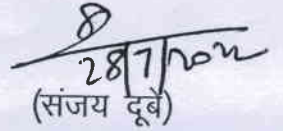 28/7/2022
(संजय दूबे)